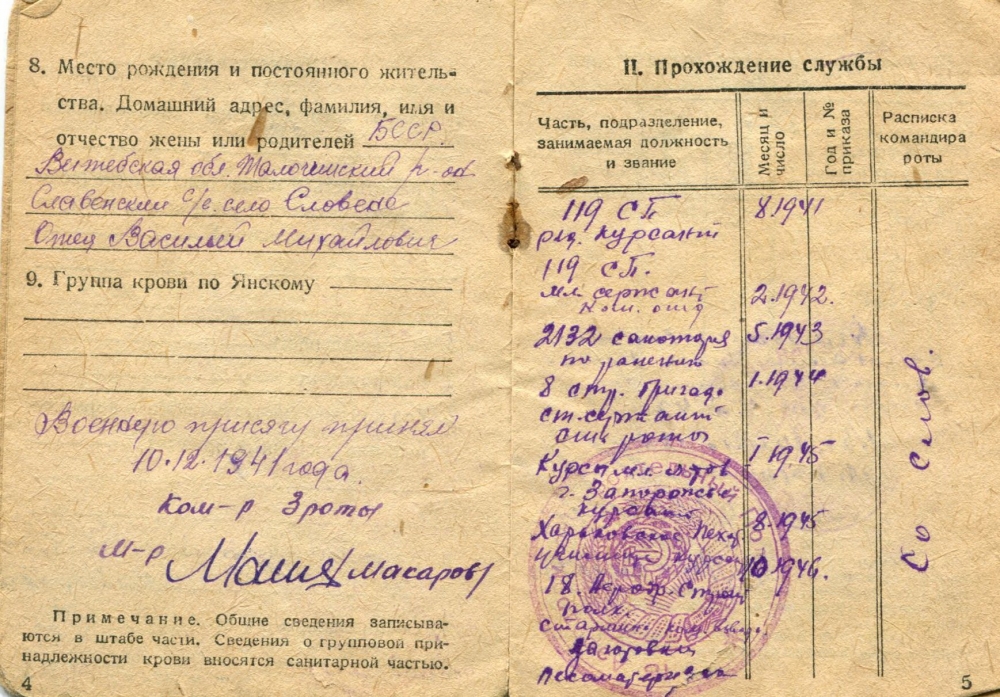 8. Место рождения и постоянного житель-
ства. Домашний адрес, фамилия, имя и
отчество жены или родителей БССР
Витебская обл. Талочинский р-он
Славенский с/с. село Словени
Отец Василий Михайлович
9. Группа крови по Янскому
Военную присягу принял
10.12.1941 года.
Ком-р 3 роты
М-р Макаров
Примечание. Общие сведения записыва-
ются в штабе части. Сведения о групповой при-
надлежности крови вносятся санитарной частью.
4
II. Прохождение службы
Часть, подразделение, занимаемая должность и звание
Месяц и число
Год и № приказа
Расписка командира роты
119 СП 8.1941
ряд. курсант
119 СП.
мл. сержант 2.1942.
ком. отд
2132 5.1943
по ранению
8 стр. бригада 1.1944
ст. сержант
роты
Курсы мл. I 1945
г. Запорожье
курсант
Харьковское пехот 8.1945
10 1946.
18. Аэродр. Строит
полк.
Старшина ком. взвода
заготовки
лесоматериала
Со слов.
5